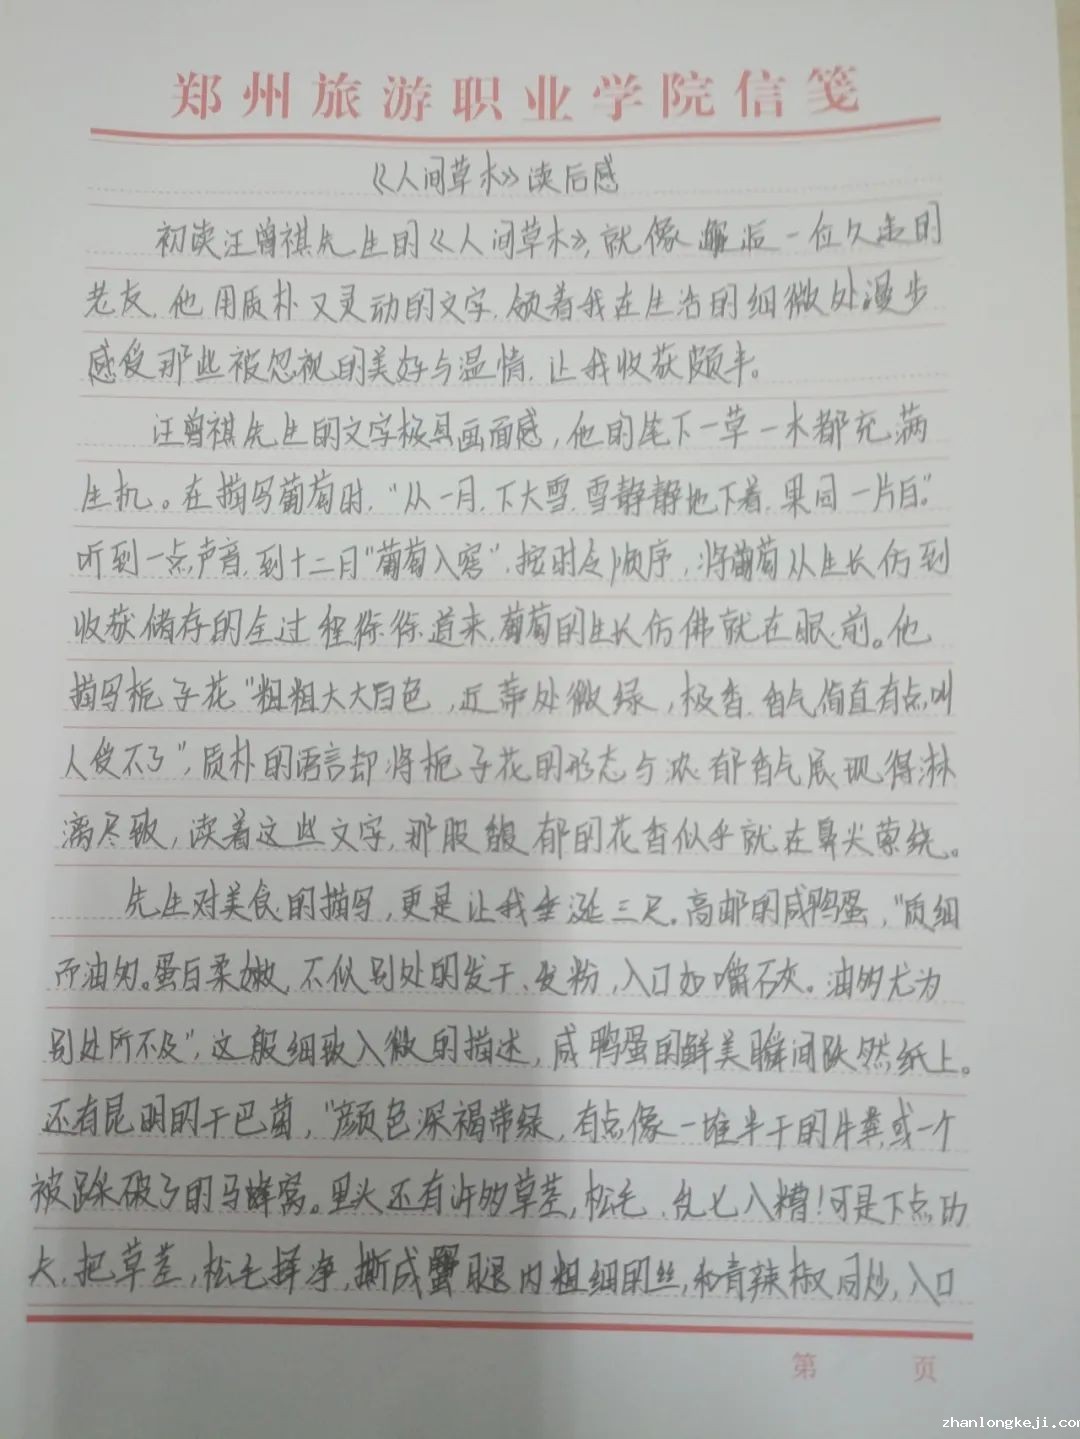 郑州旅游职业学院信笺
《人间草木》读后感
初读汪曾祺先生的《人间草木》,就像邂逅一位久违的
老友,他用质朴又灵动的文字,领着我在生活的细微处漫步
感受那些被忽视的美好与温情,让我收获颇丰。
汪曾祺先生的文字极具画面感,他的笔下一草一木都充满
生机。在描写葡萄时,“从一月,下大雪,雪静静地下着,果园一片白。”
听到一点声音,到十二月“葡萄入窖”,按时令顺序,将葡萄从生长仿到
收获储存的全过程徐徐道来,葡萄的生长仿佛就在眼前。他
描写栀子花“粗粗大大白色,近蒂处微绿,极香,香气简直有点叫
人受不了”,质朴的语言却将栀子花的形态与浓郁香气展现得淋
漓尽致,读着这些文字,那股馥郁的花香似乎就在鼻尖萦绕。
先生对美食的描写,更是让我垂涎三尺。高邮的咸鸭蛋,“质细
而油多。蛋白柔嫩,不似别处的发干、发粉,入口如嚼石灰。油多尤为
别处所不及”,这般细致入微的描述,咸鸭蛋的鲜美瞬间跃然纸上。
还有昆明的干巴菌,“颜色深褐带绿,有点像一堆半干的牛粪或一个
被踩破了的马蜂窝。里头还有许多草茎,松毛、乱七八糟!可是下点功
夫,把草茎,松毛择净,撕成蟹腿肉粗细的丝,和青辣椒同炒,入口
第 页
zhanlongkeji.com